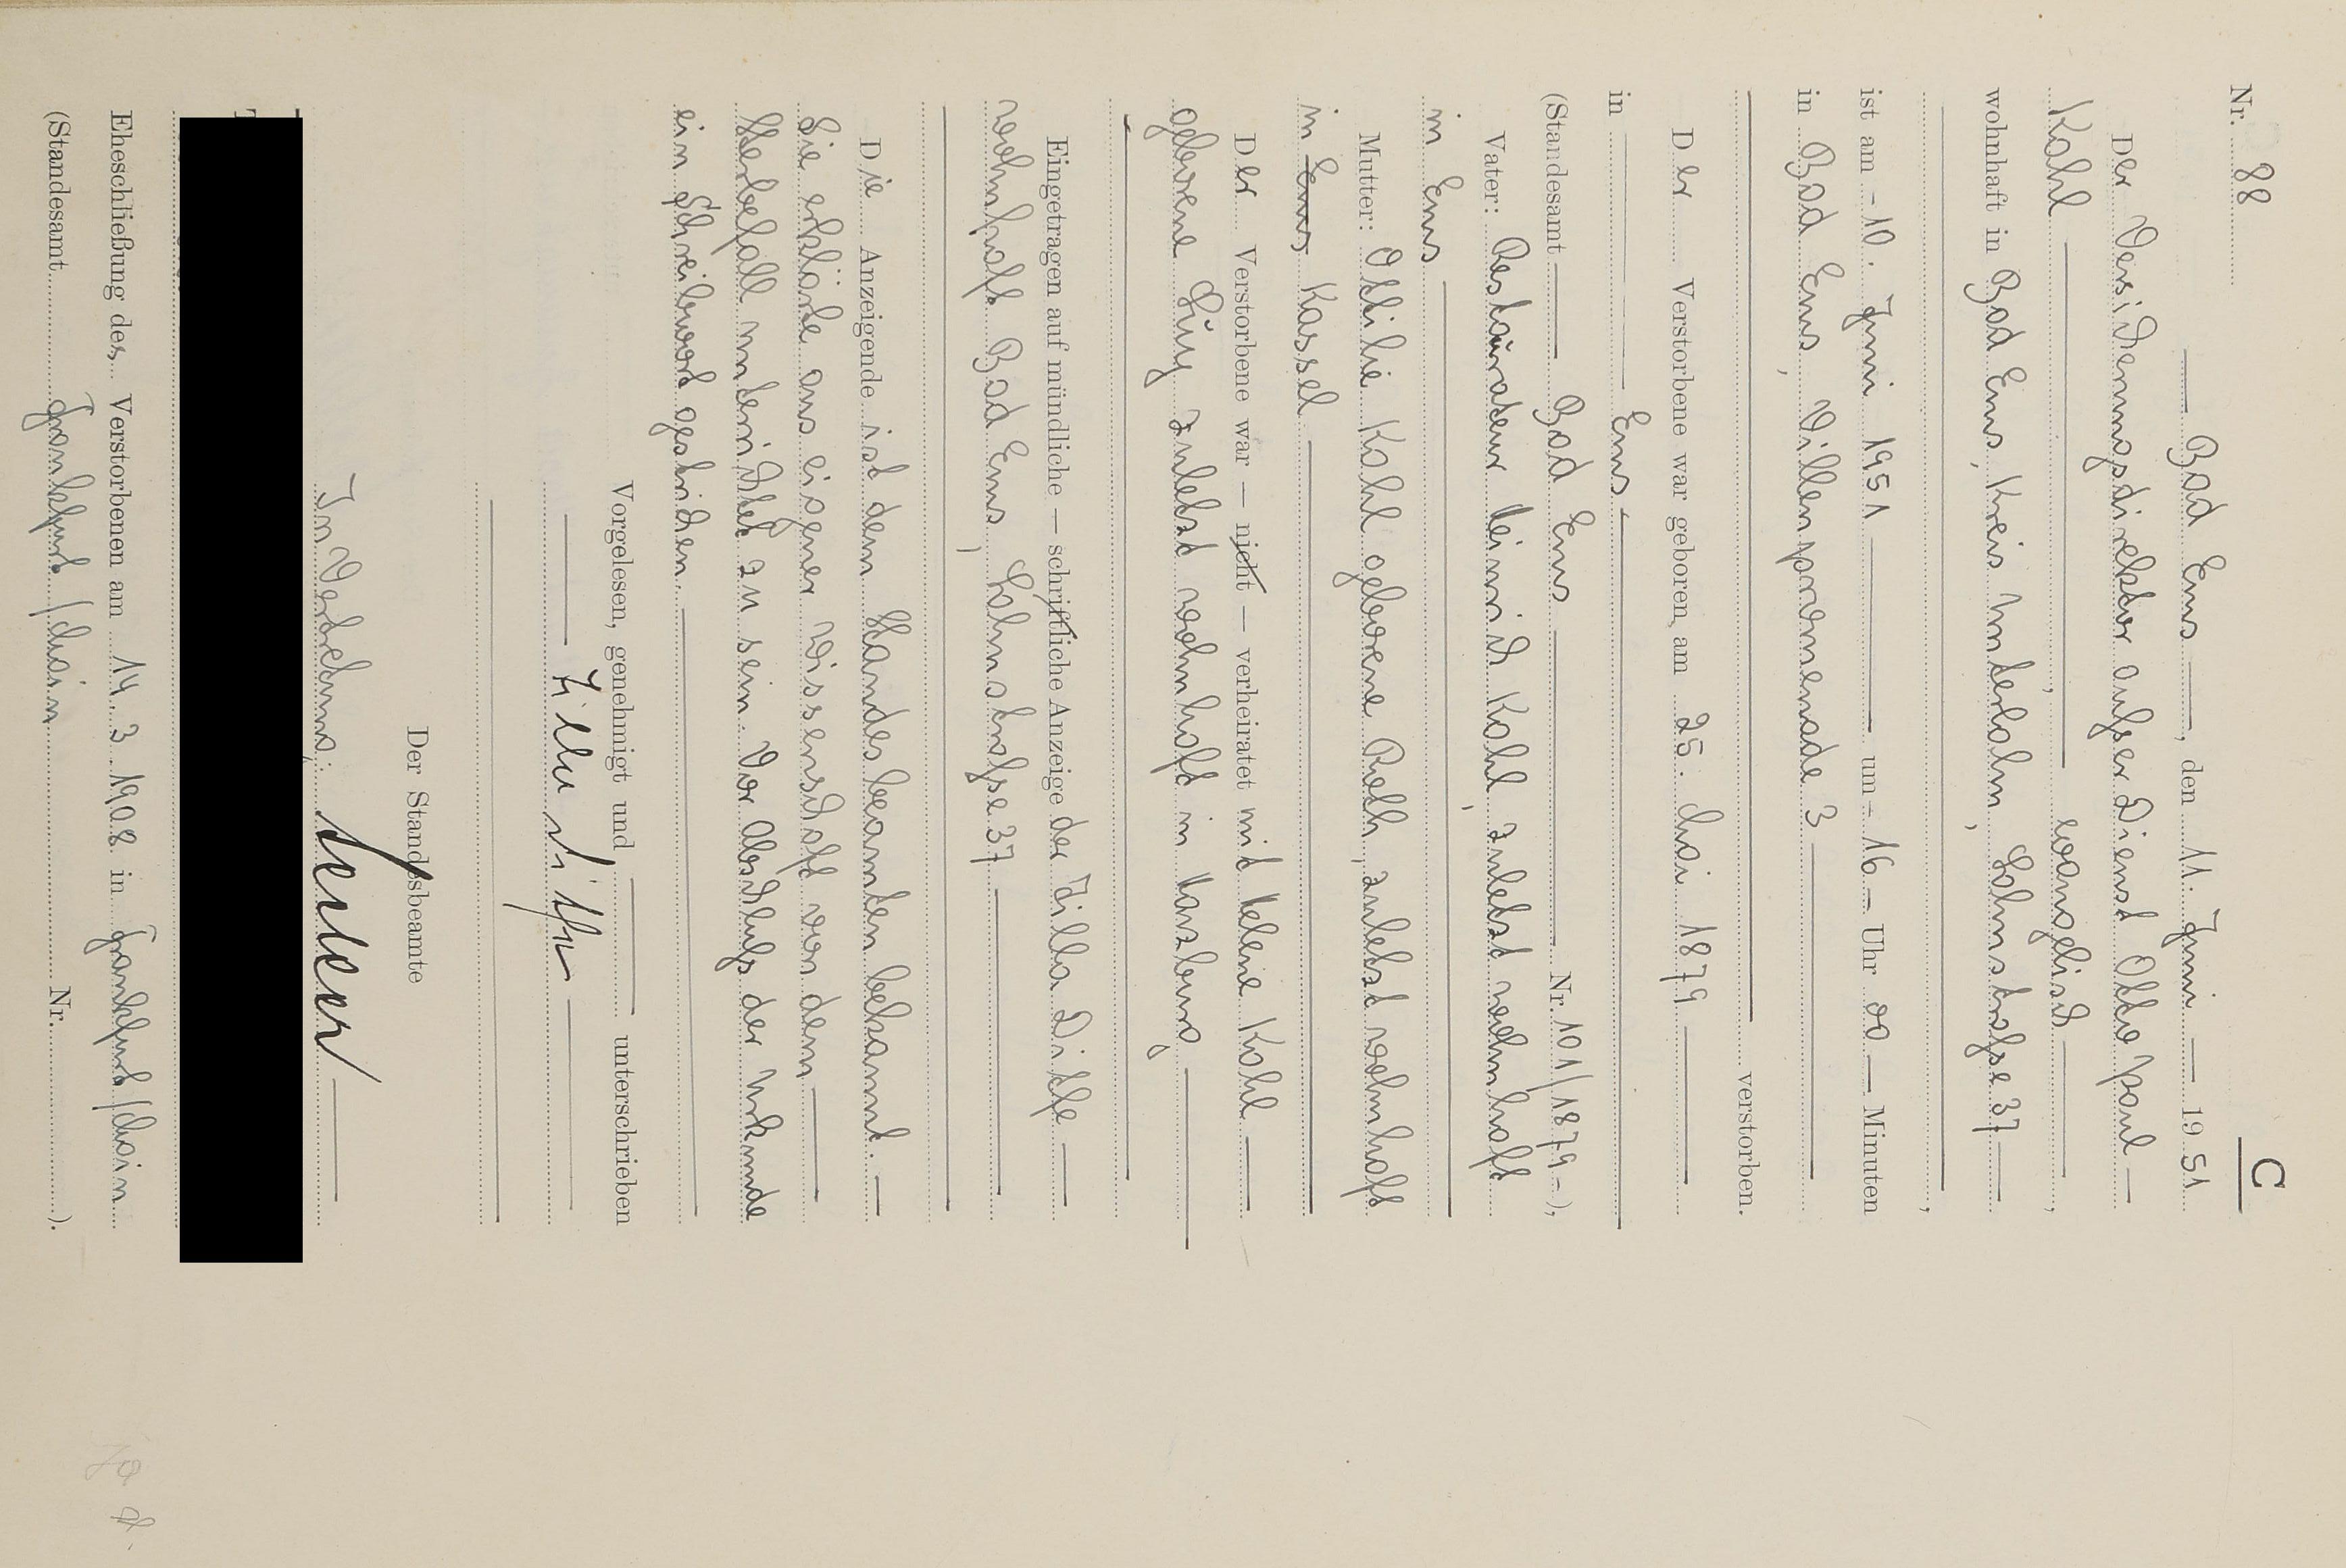 C
Nr. 88
Bad Ems, den 11. Juni 1951
Der Versicherungsdirektor außer Dienst Otto Paul
Kohl, evangelisch,
wohnhaft in Bad Ems, Kreis Unterlahn, Lahnstraße 37,
ist am - 10. Juni 1951 um - 16 - Uhr 00 Minuten
in Bad Ems, Villenpromenade 3
verstorben.
Der Verstorbene war geboren am 25. Mai 1879
in Ems
(Standesamt Bad Ems Nr. 101/1879 -),
Vater: Restaurateur Heinrich Kohl, zuletzt wohnhaft
in Ems
Mutter: Ottilie Kohl geborene Roth, zuletzt wohnhaft
in Ems Kassel
Der Verstorbene war — nicht — verheiratet mit Helene Kohl
geborene zuletzt wohnhaft in Harzburg
Eingetragen auf mündliche — schriftliche Anzeige der Zilla Ditfe
wohnhaft Bad Ems, Lahnstraße 37
Die Anzeigende ist dem Standesbeamten bekannt.
Sie erklärte aus eigener Wissenschaft von dem
Sterbefall unterrichtet zu sein. Vor Abschluß der Urkunde
ein Schreibwort gestrichen.
Vorgelesen, genehmigt und unterschrieben
Der Standesbeamte
In Vertretung:
Eheschließung des Verstorbenen am 14. 3. 1908 in Frankfurt/Main
(Standesamt Frankfurt/Main Nr. ).